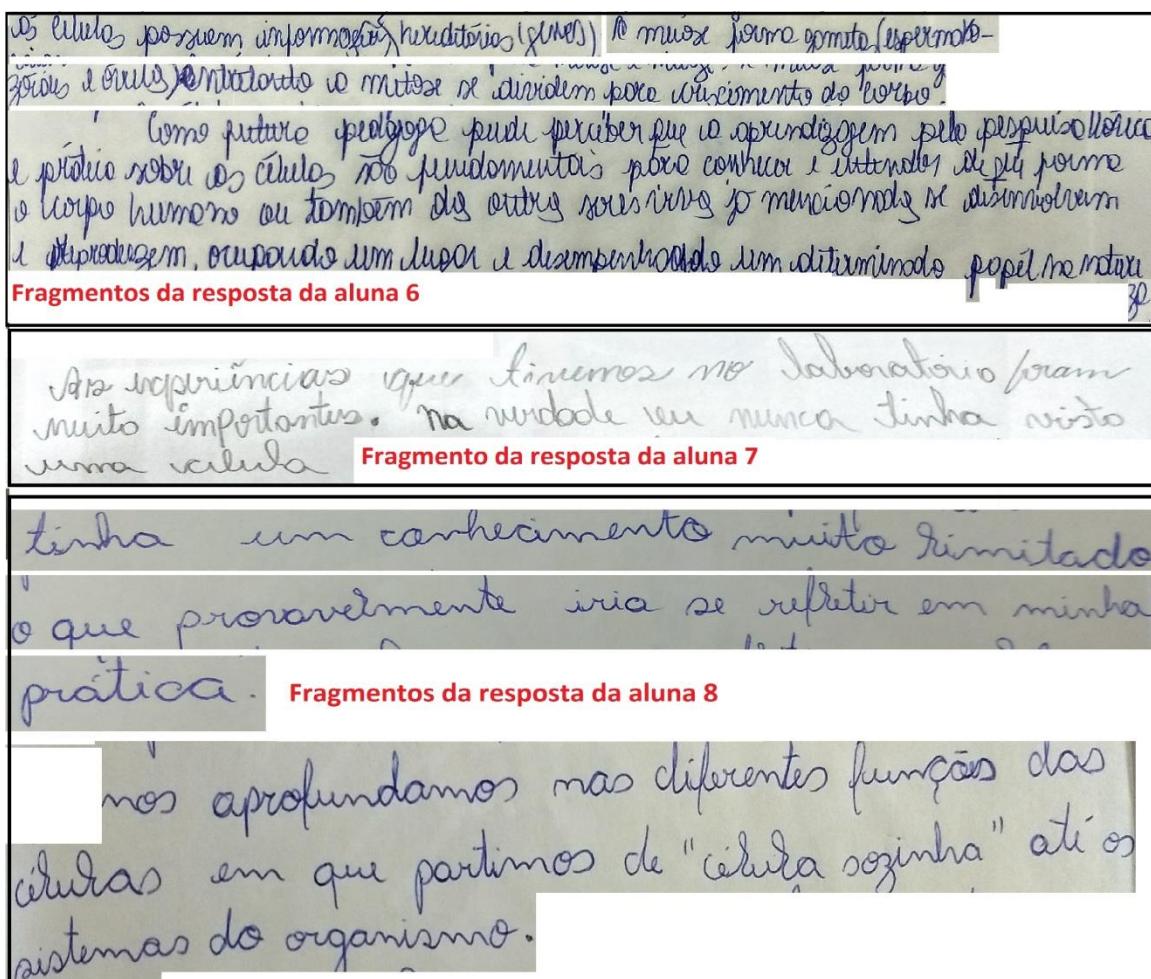 as células possuem informações hereditárias (genes) A meiose forma gametas (espermato-
zóides e óvulos) entretanto a mitose se dividem para crescimento do corpo.
Como futura pedagoga pude perceber que a aprendizagem pela pesquisa teórica
e prática sobre as células são fundamentais para conhecer e entender de que forma
o corpo humano ou também dos outros seres vivos já mencionados se desenvolvem
e reproduzem, ocupando um lugar e desempenhando um determinado papel na nature
za
Fragmentos da resposta da aluna 6
As experiências que tivemos no laboratório foram
muito importantes. Na verdade eu nunca tinha visto
uma célula Fragmento da resposta da aluna 7
tinha um conhecimento muito limitado
o que provavelmente iria se refletir em minha
prática. Fragmentos da resposta da aluna 8
nos aprofundamos nas diferentes funções das
células em que partimos de "célula sozinha" até os
sistemas do organismo.